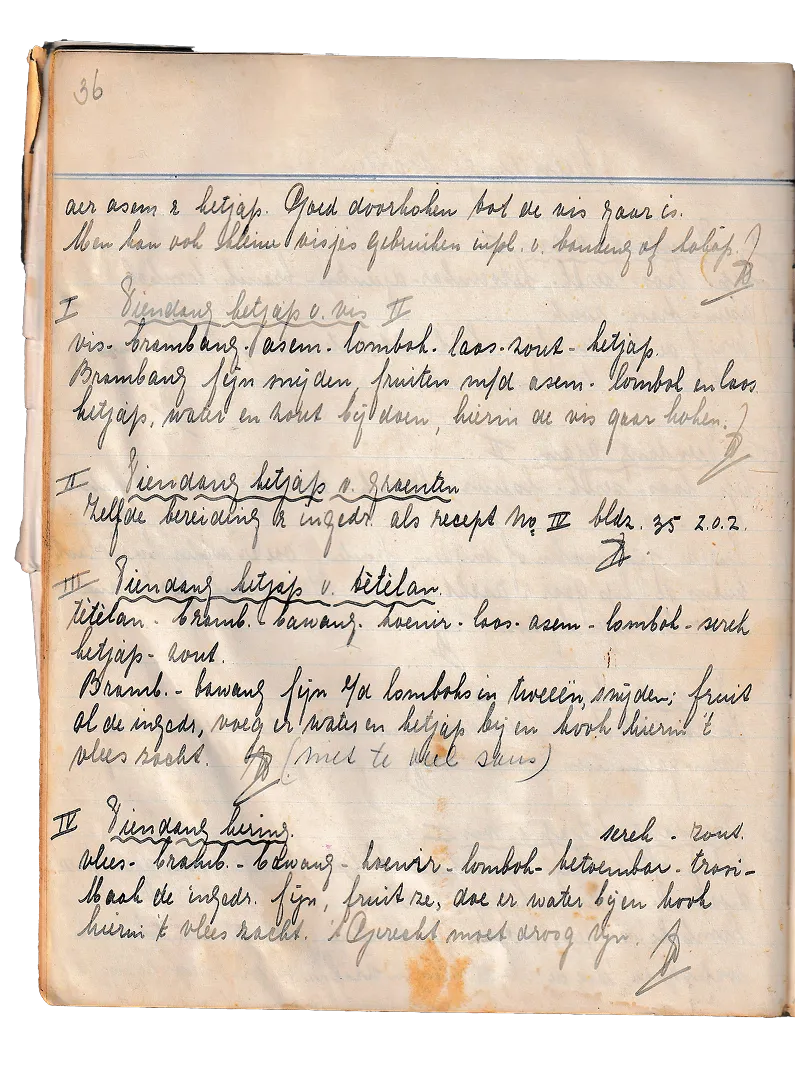 36
aer asem & ketjap. Goed doorkoken tot de vis gaar is.
Men kan ook kleine visjes gebruiken inpl. v. bandeng of kakap.
I Diendang ketjap v. vis II
vis - brambang - asem - lombok - laos - zout - ketjap.
Brambang fijn snijden, fruiten m/d asem - lombok en laos
ketjap, water en zout bij doen, hierin de vis gaar koken.
II Diendang ketjap v. groenten
Zelfde bereiding & ingedr. als recept No. IV bldz. 35 z.o.z.
III Diendang ketjap v. tètèlan.
tètèlan - bramb. - bawang - koenir - laos - asem - lombok - sereh
ketjap - zout.
Bramb. - bawang fijn &/d lomboks in tweeën, snijden; fruit
al de ingedr., voeg er water en ketjap bij en kook hierin 't
vlees zacht. (niet te veel saus)
IV Diendang kering. sereh - zout.
vlees - bramb. - bawang - koenir - lombok - ketoembar - trasi -
Maak de ingedr. fijn, fruit ze, doe er water bij en kook
hierin 't vlees zacht. 't Gerecht moet droog zijn.